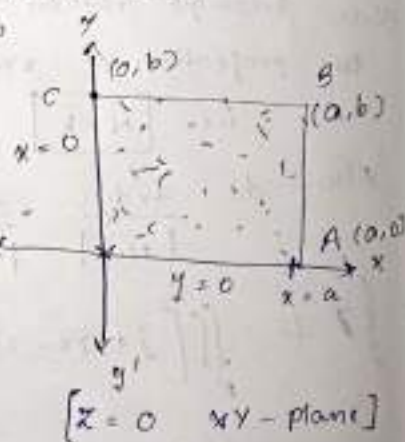 y
(0,b)
B
C
(a,b)
x = 0
A (a,0)
x
y = 0
x = a
y'
[z = 0 xy - plane]